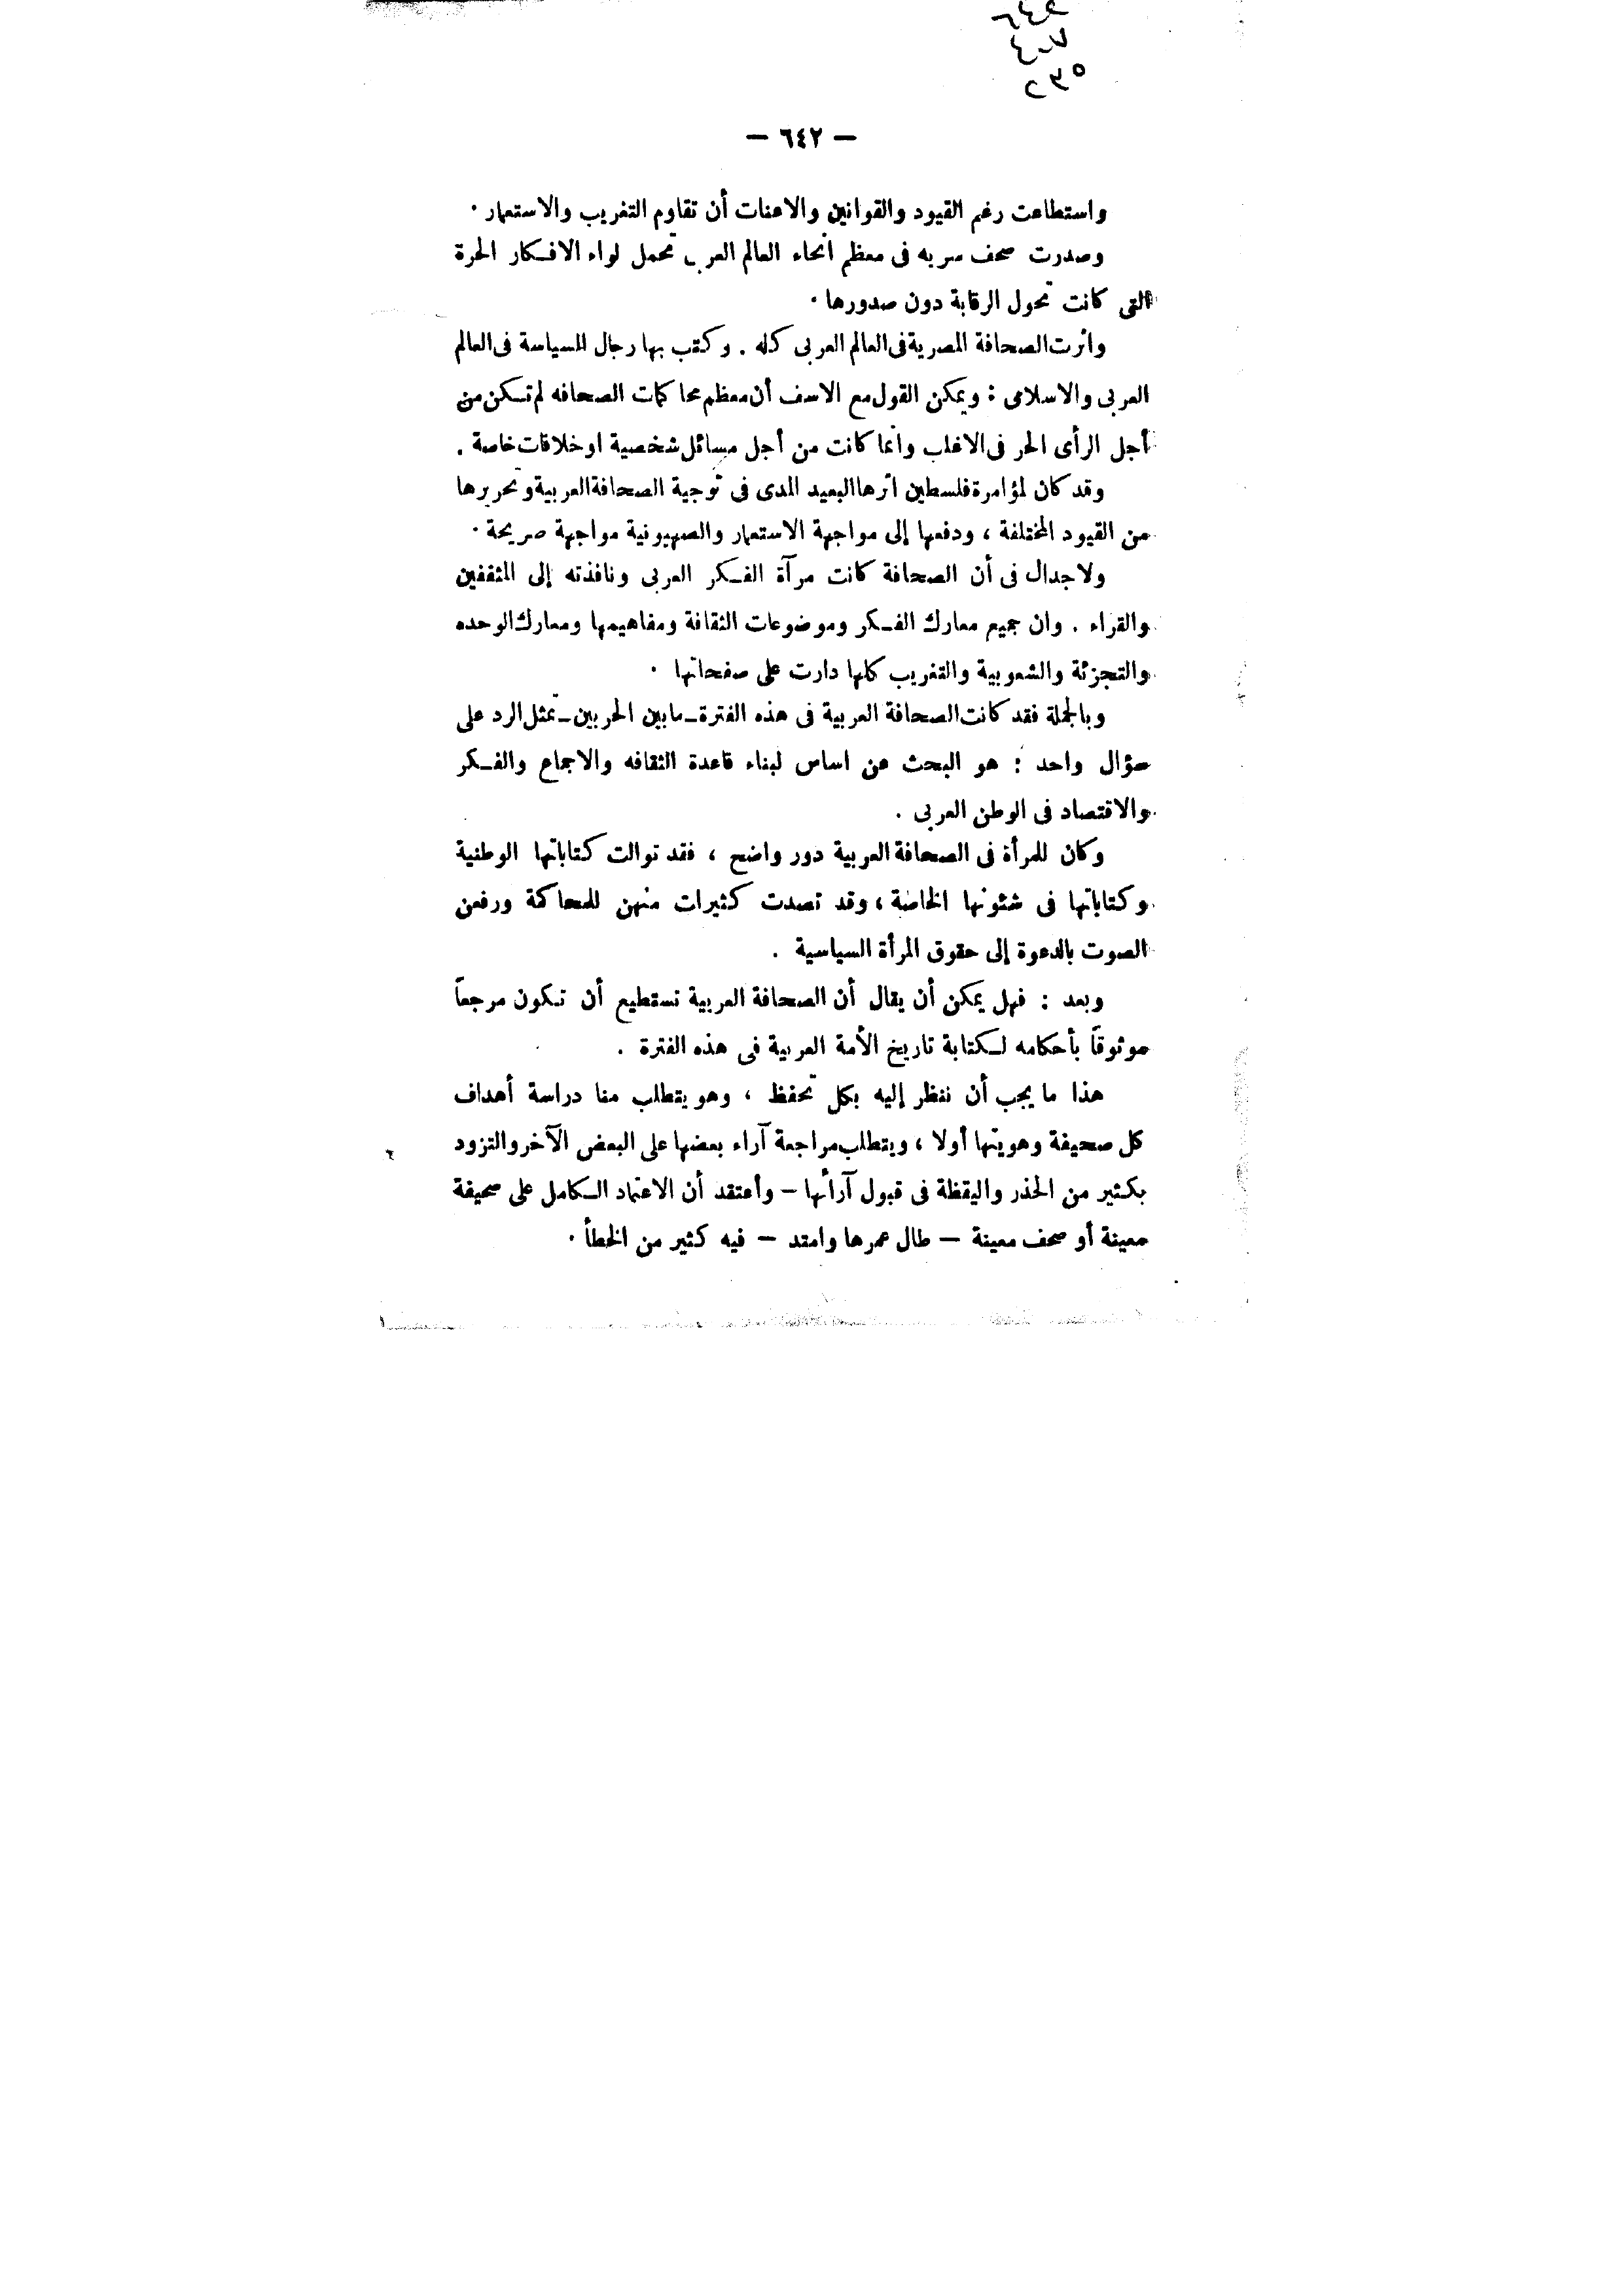 — ٦٤٢ —
واستطاعت رغم القيود والقوانين والاعنات أن تقاوم التغريب والاستعمار .
وصدرت صحف سريه فى معظم انحاء العالم العربى تحمل لواء الافكار الحرة
التى كانت تحول الرقابة دون صدورها .
وأثرت الصحافة المصرية فى العالم العربى كله . وكتب بها رجال السياسة فى العالم
العربى والاسلامى : ويمكن القول مع الاسف أن معظم محاكمات الصحافه لم تكن من
أجل الرأى الحر فى الاغلب وانما كانت من أجل مسائل شخصية او خلافات خاصة .
وقد كان لمؤامرة فلسطين اثرها البعيد المدى فى توجية الصحافة العربية وتحريرها
من القيود المختلفة ، ودفعها إلى مواجهة الاستعمار والصهيونية مواجهة صريحة .
ولا جدال فى أن الصحافة كانت مرآة الفكر العربى ونافذته إلى المثقفين
والقراء . وان جميع معارك الفكر وموضوعات الثقافة ومفاهيمها ومعارك الوحده
والتجزئة والشعوبية والتغريب كلها دارت على صفحاتها .
وبالجملة فقد كانت الصحافة العربية فى هذه الفترة – ما بين الحربين – تمثل الرد على
سؤال واحد : هو البحث عن اساس لبناء قاعدة الثقافه والاجماع والفكر
والاقتصاد فى الوطن العربى .
وكان للمرأة فى الصحافة العربية دور واضح ، فقد توالت كتاباتها الوطنية
وكتاباتها فى شئونها الخاصة ، وقد تصدت كثيرات منهن للمحاكمة ورفعن
الصوت بالدعوة إلى حقوق المرأة السياسية .
وبعد : فهل يمكن أن يقال أن الصحافة العربية تستطيع أن تكون مرجعاً
موثوقاً بأحكامه لكتابة تاريخ الأمة العربية فى هذه الفترة .
هذا ما يجب أن ننظر إليه بكل تحفظ ، وهو يتطلب منا دراسة أهداف
كل صحيفة وهويتها أولا ، ويتطلب مراجعة آراء بعضها على البعض الآخر والتزود
بكثير من الحذر واليقظة فى قبول آرائها – وأعتقد أن الاعتماد الكامل على صحيفة
معينة أو صحف معينة – طال عمرها وامتد – فيه كثير من الخطأ .